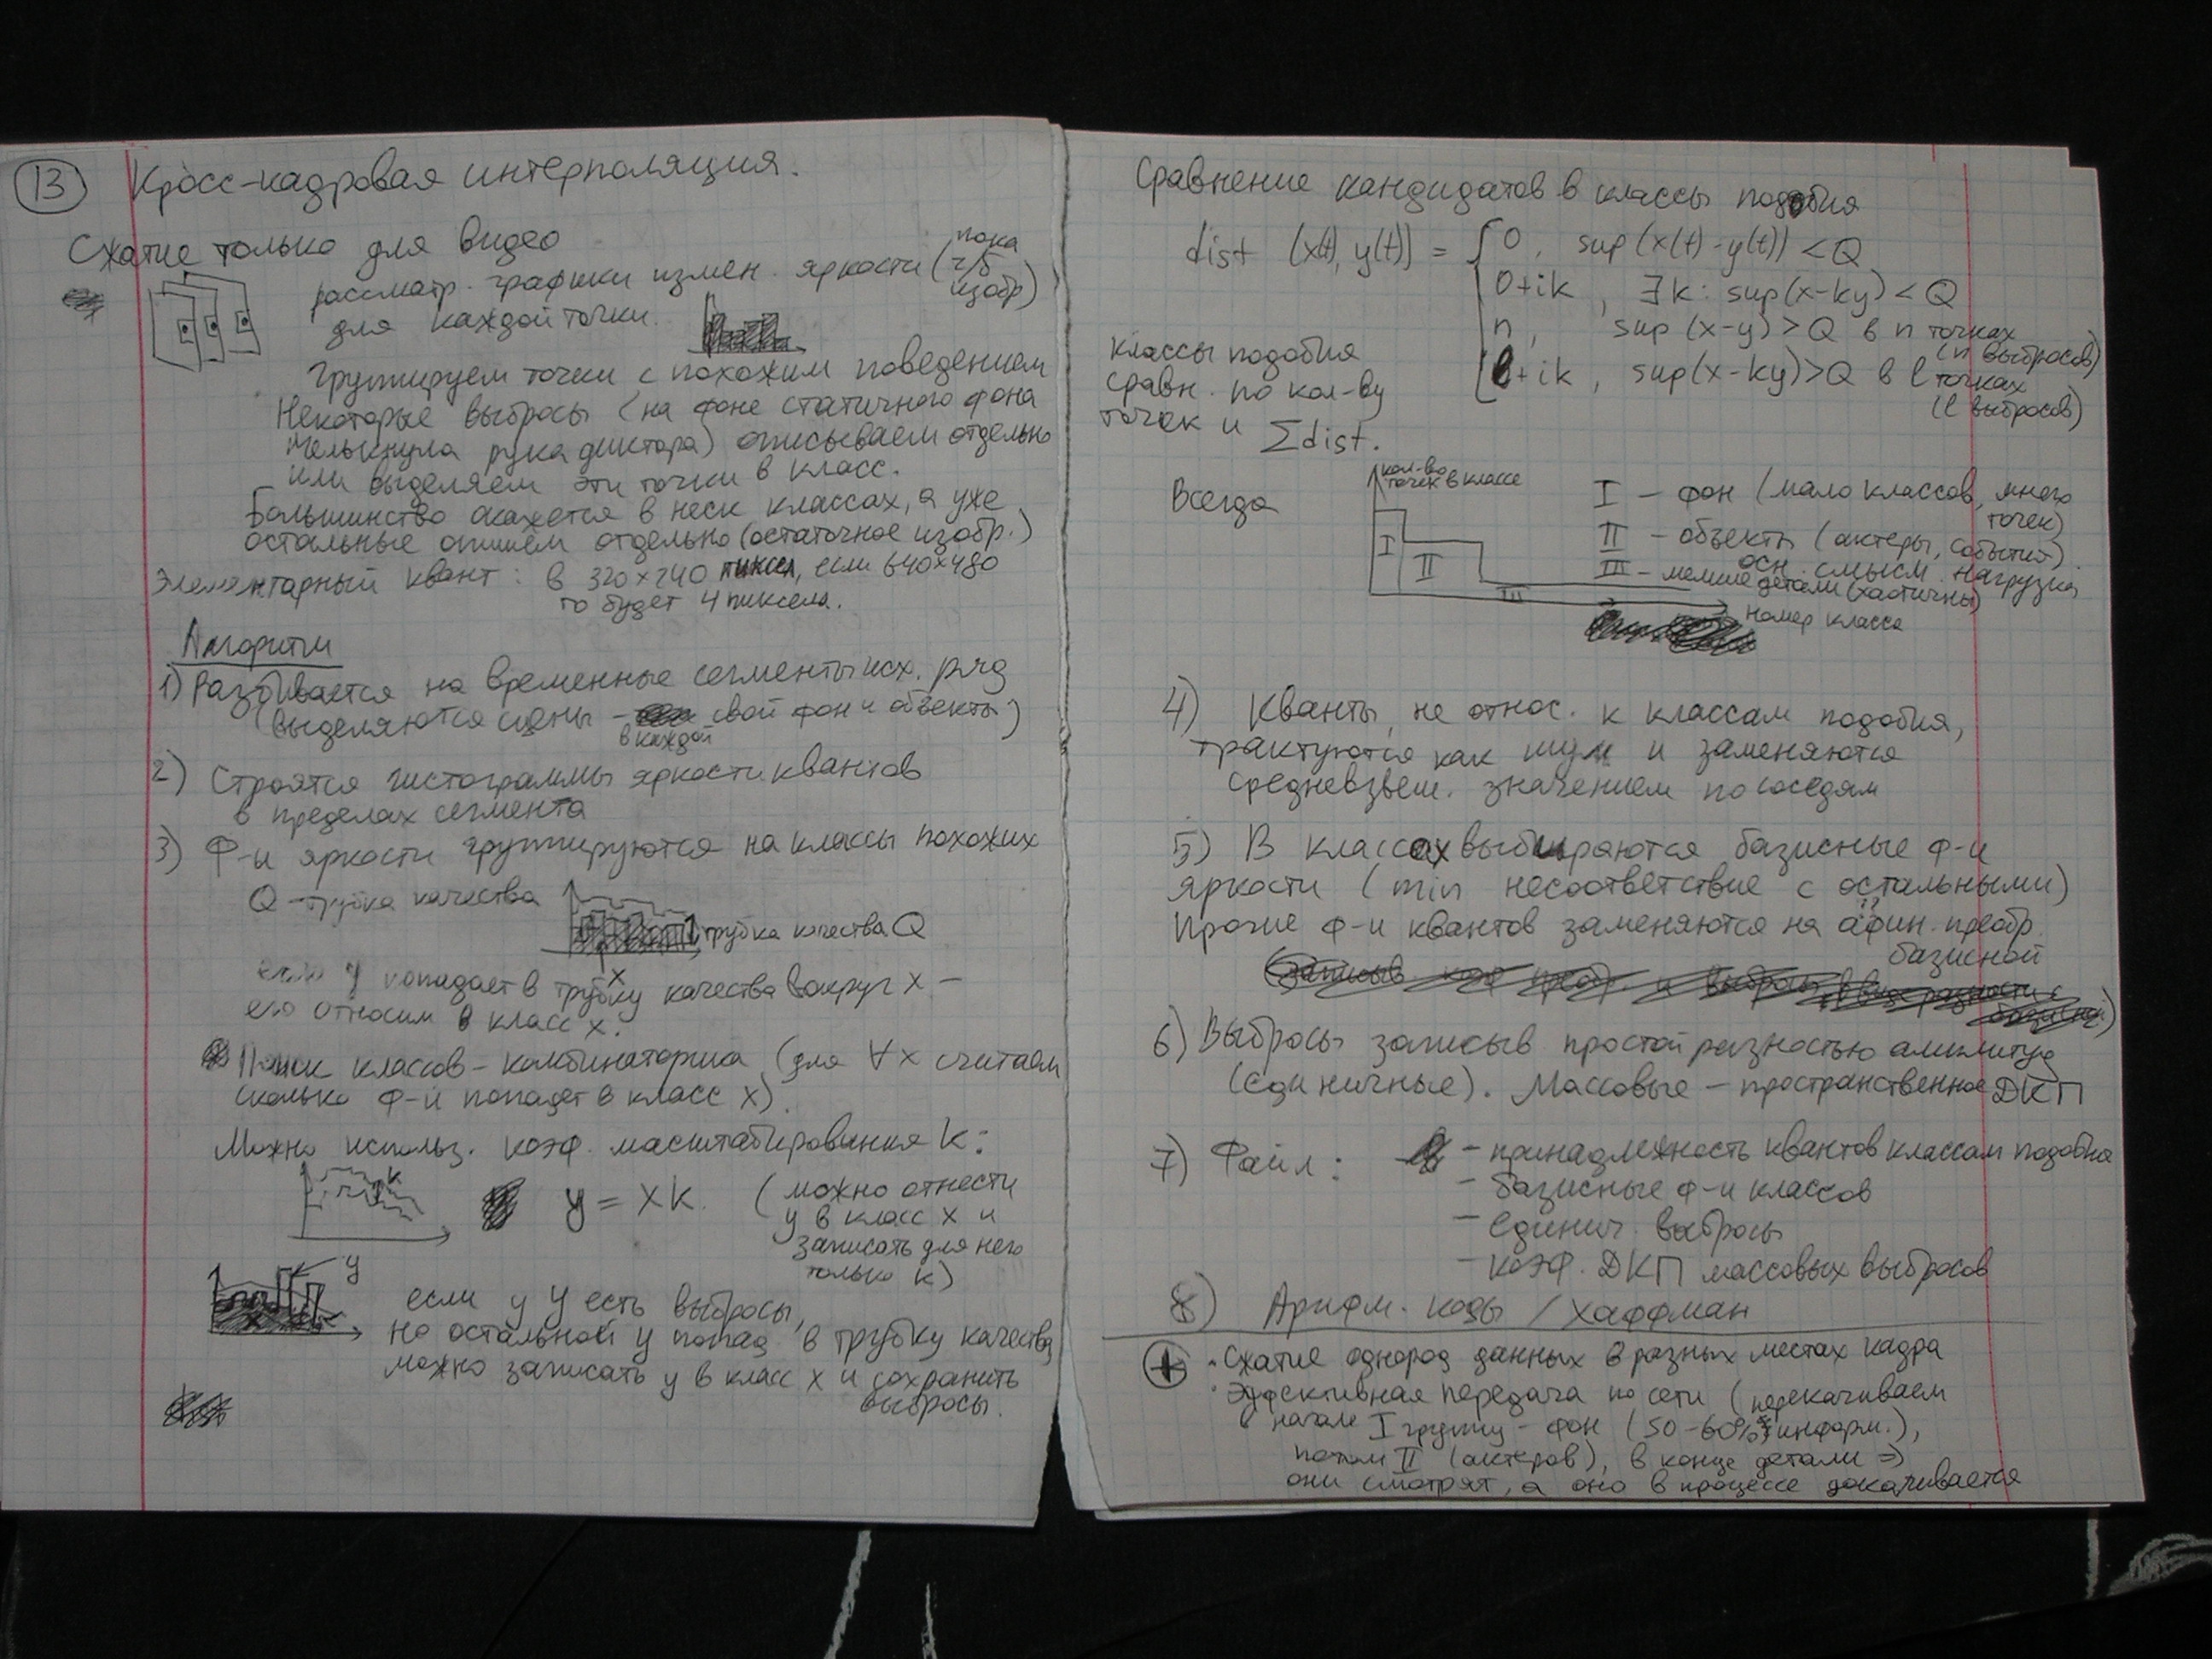 13 Кросс-кадровая интерполяция.
Сжатие только для видео
рассматр. графики измен. яркости (пока ч/б изобр)
для каждой точки.
Группируем точки с похожим поведением
Некоторые выбросы (на фоне статичного фона
мелькнула рука диктора) описываем отдельно
или выделяем эти точки в класс.
Большинство окажется в неск классах, а уже
остальные опишем отдельно (остаточное изобр.)
Элементарный квант: в 320×240 пиксел, если 640×480
то будет 4 пиксела.
Алгоритм
1) Разбивается на временные сегменты исх. ряд
(выделяются сцены – в каждой свой фон и объекты)
2) Строятся гистограммы яркости квантов
в пределах сегмента
3) Ф-и яркости группируются на классы похожих
Q – трубка качества
трубка качества Q
x
если y попадает в трубку качества вокруг x –
его относим в класс x.
Поиск классов – комбинаторика (для ∀x считаем
сколько ф-й попадет в класс x).
Можно использ. коэф. масштабирования K:
K
y = XK. (можно отнести
y в класс x и
записать для него
только K)
y
x
если у y есть выбросы,
но остальной y попад в трубку качества
можно записать y в класс x и сохранить
выбросы.
Сравнение кандидатов в классы подобия
dist (x(t), y(t)) = { 0, sup(x(t) - y(t)) < Q
0+ik, ∃k: sup(x-ky) < Q
n, sup(x-y) > Q в n точках
(n выбросов)
l+ik, sup(x-ky) > Q в l точках
(l выбросов)
классы подобия
сравн. по кол-ву
точек и Σdist.
Всегда
кол-во
точек в классе
I II III
номер класса
I – фон (мало классов, много
точек)
II – объекты (актеры, события).
осн. смысл. нагрузка
III – мелкие детали (хаотичны)
4) Кванты, не относ. к классам подобия,
трактуются как шум и заменяются
средневзвеш. значением по соседям
5) В классах выбираются базисные ф-и
яркости (min несоответствие с остальными)
Прочие ф-и квантов заменяются на афин. преобр.
базисной
6) Выбросы записыв простой разностью амплитуд
(единичные). Массовые – пространственное ДКП
7) Файл: – принадлежность квантов классам подобия
– базисные ф-и классов
– единич. выбросы
– коэф. ДКП массовых выбросов
8) Арифм. коды / Хаффман
+ · Сжатие однород данных в разных местах кадра
· Эффективная передача по сети (перекачиваем
в начале I группу – фон (50-60% информ.),
потом II (актеров), в конце детали ⇒
они смотрят, а оно в процессе докачивается